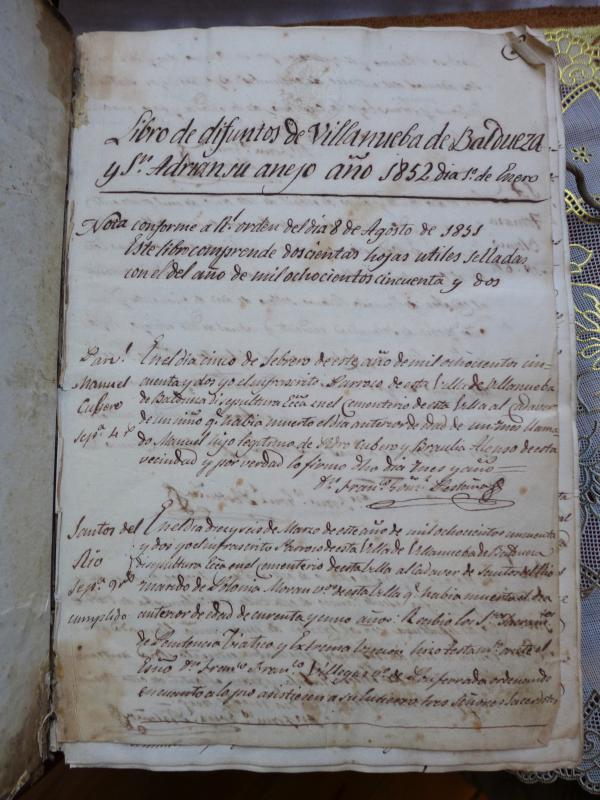 Libro de difuntos de Villanueba de Baldueza
y Sn. Adrian su anejo año 1852 dia 1o. de Enero
Nota conforme a Rl. orden del dia 8 de Agosto de 1851
Este libro comprende doscientas hojas utiles selladas
con el del año de mil ochocientos cincuenta y dos
Par.l
Manuel
Cubero
Sepa. 4
En el dia cinco de Febrero de este año de mil ochocientos cin-
cuenta y dos yo el infrascrito Parroco de esta Villa de Villanueba
de Baldueza di sepultura Ecca. en el cementerio de esta Villa al cadaver
de un niño q. habia muerto el dia anterior de edad de un mes llama-
do Manuel hijo legitimo de Pedro Cubero y Braulia Alonso de esta
vecindad y por verdad lo firmo dho dia mes y año
Dn. Franco.
Santos del
Rio
Sepa. 9
cumplido
En el dia diez y seis de Marzo de este año de mil ochocientos cincuenta
y dos yo el infrascrito Parroco de esta Villa de Villanueba de Baldueza
di sepultura Ecca. en el cementerio de esta Villa al cadaver de Santos del Rio
marido de Paloma Moran vo. de esta Villa q. habia muerto el dia
anterior de edad de cuarenta y uno años. Recibio los Stos. Sacramtos.
de Penitencia Viatico y Extrema Uncion hizo testamto. ante el
Esno. Dn. Franco. Villegas vo. de Ponferrada ordenando
en cuanto a lo pio asistiesen a su entierro tres Señores Sacerdotes